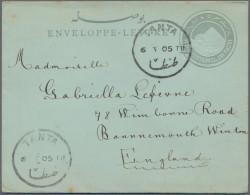 بوصله
ENVELOPPE-LETTRE
TANTA
6 X 05 TII
طنطا
Madmoiselle
Gabriella Lefevre
78 Wimborne Road
Bournemouth Winton
England
TANTA
05 TII
طنطا